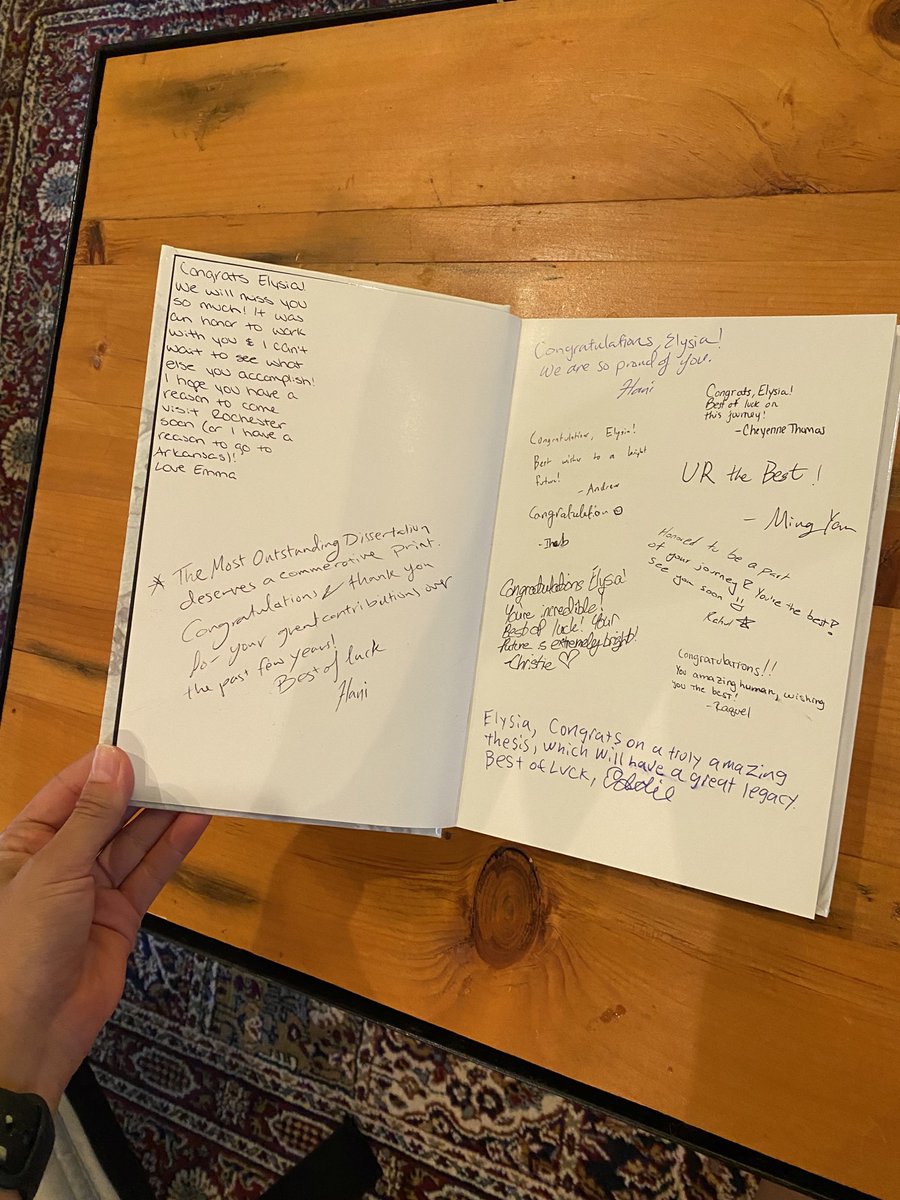 Congrats Elysia!
We will miss you
so much! It was
an honor to work
with you & I can't
wait to see what
else you accomplish!
I hope you have a
reason to come
visit Rochester
soon (or I have a
reason to go to
Arkansas)!
Love Emma
* The Most Outstanding Dissertation
deserves a commerative print.
Congratulations & thank you
for your great contributions over
the past few years!
Best of luck
Hani
Congratulations, Elysia!
We are so proud of you.
Hani
Congrats, Elysia!
Best of luck on
this journey!
- Cheyenne Thomas
Congratulations, Elysia!
Best wishes to a bright
future!
- Andrew
Congratulation ☺
UR the Best!
- Ming Yan
Honored to be a part
of your journey! You're the best!
see you soon !!
Congratulations Elysia!
You're incredible!
Best of luck! Your
future is extremely bright!
- Christie ♡
Congratulations!!
You amazing human, wishing
you the best!
- Raquel
Elysia, Congrats on a truly amazing
thesis, which will have a great legacy.
Best of Luck,